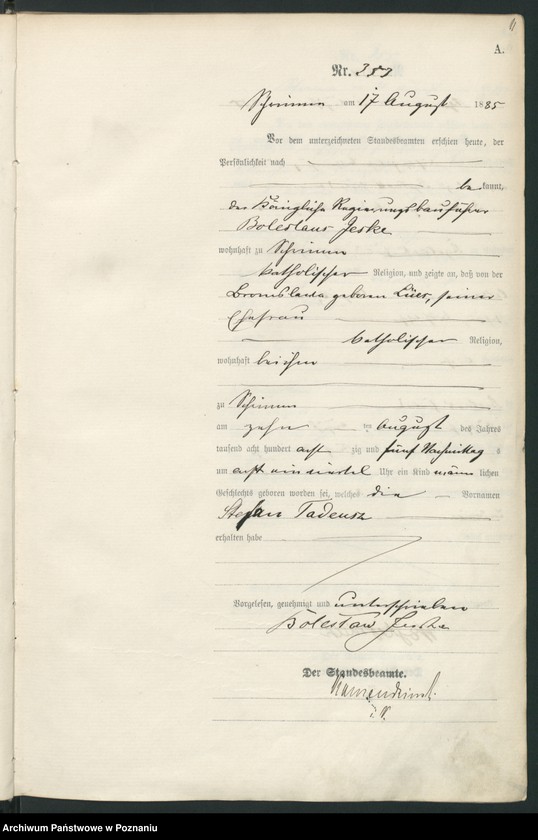 A.
Nr.
Schrimm am 17 August 1885
Vor dem unterzeichneten Standesbeamten erschien heute, der
Persönlichkeit nach
bekannt,
der Königliche Regierungsbauführer
Boleslaus Jeske
wohnhaft zu Schrimm
katholischer Religion, und zeigte an, daß von der
Bronislawa geboren seiner
Ehefrau
katholischer Religion,
wohnhaft bei ihm
zu Schrimm
am zehn ten August des Jahres
tausend acht hundert acht zig und fünf Nachmittag s
um acht ein viertel Uhr ein Kind männ lichen
Geschlechts geboren worden sei, welches die Vornamen
Stefan Tadeusz
erhalten habe
Vorgelesen, genehmigt und unterschrieben
Bolesław Jeske
Der Standesbeamte.
i. V.
Archiwum Państwowe w Poznaniu